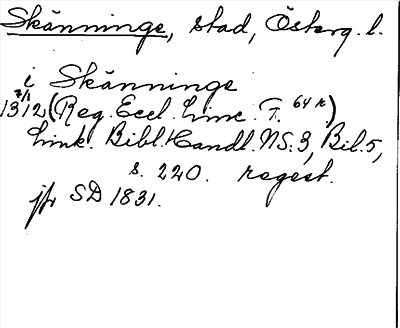 Skänninge, stad, Österg. l.
i Skänninge
7/1
1312 (Reg. Eccl. Linc. F. 64 r)
Link. Bibl. Handl. NS. 3, Bil. 5,
s. 220. regest.
jfr SD 1831.